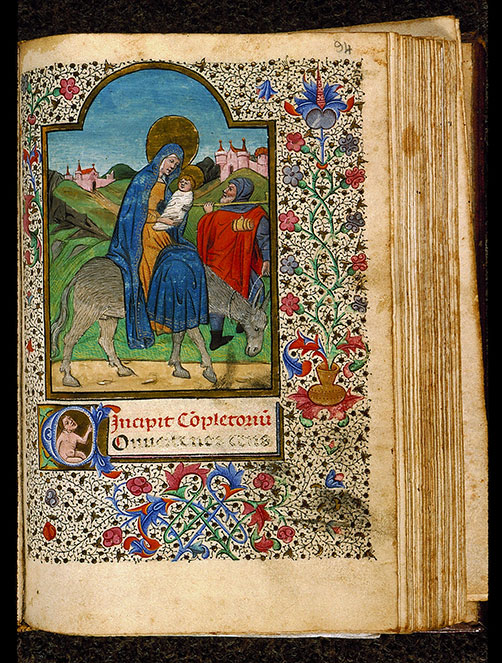 94
Incipit Cōpletoriū
COnuerte nos deus